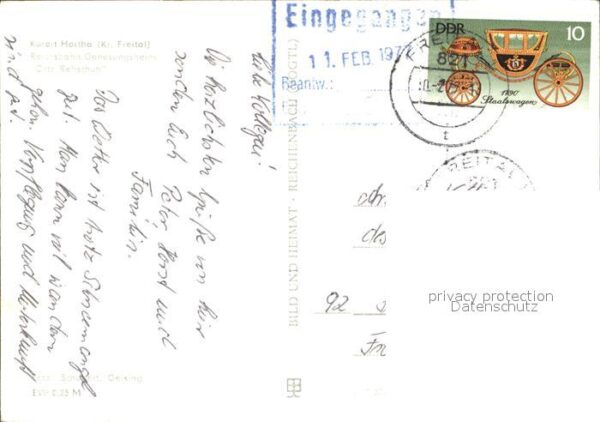 Kurort Hartha (Kr. Freital)
Reichsbahn-Genesungsheim
Liebe Kollegen!
Die herzlichsten Grüße von hier
senden Euch Peter Horst und
Familie.
Das Wetter ist trotz Schneemangel
gut. Man kann viel wandern
gehen. Verpflegung und Unterkunft
sind gut.
EVP 0,25 M
BILD UND HEIMAT · REICHENBACH (VOGTL)
Eingegangen
11. FEB. 197
Beantw.:
DDR
10
1790
Staatswagen
FREITAL
821
FREITAL
92
privacy protection
Datenschutz